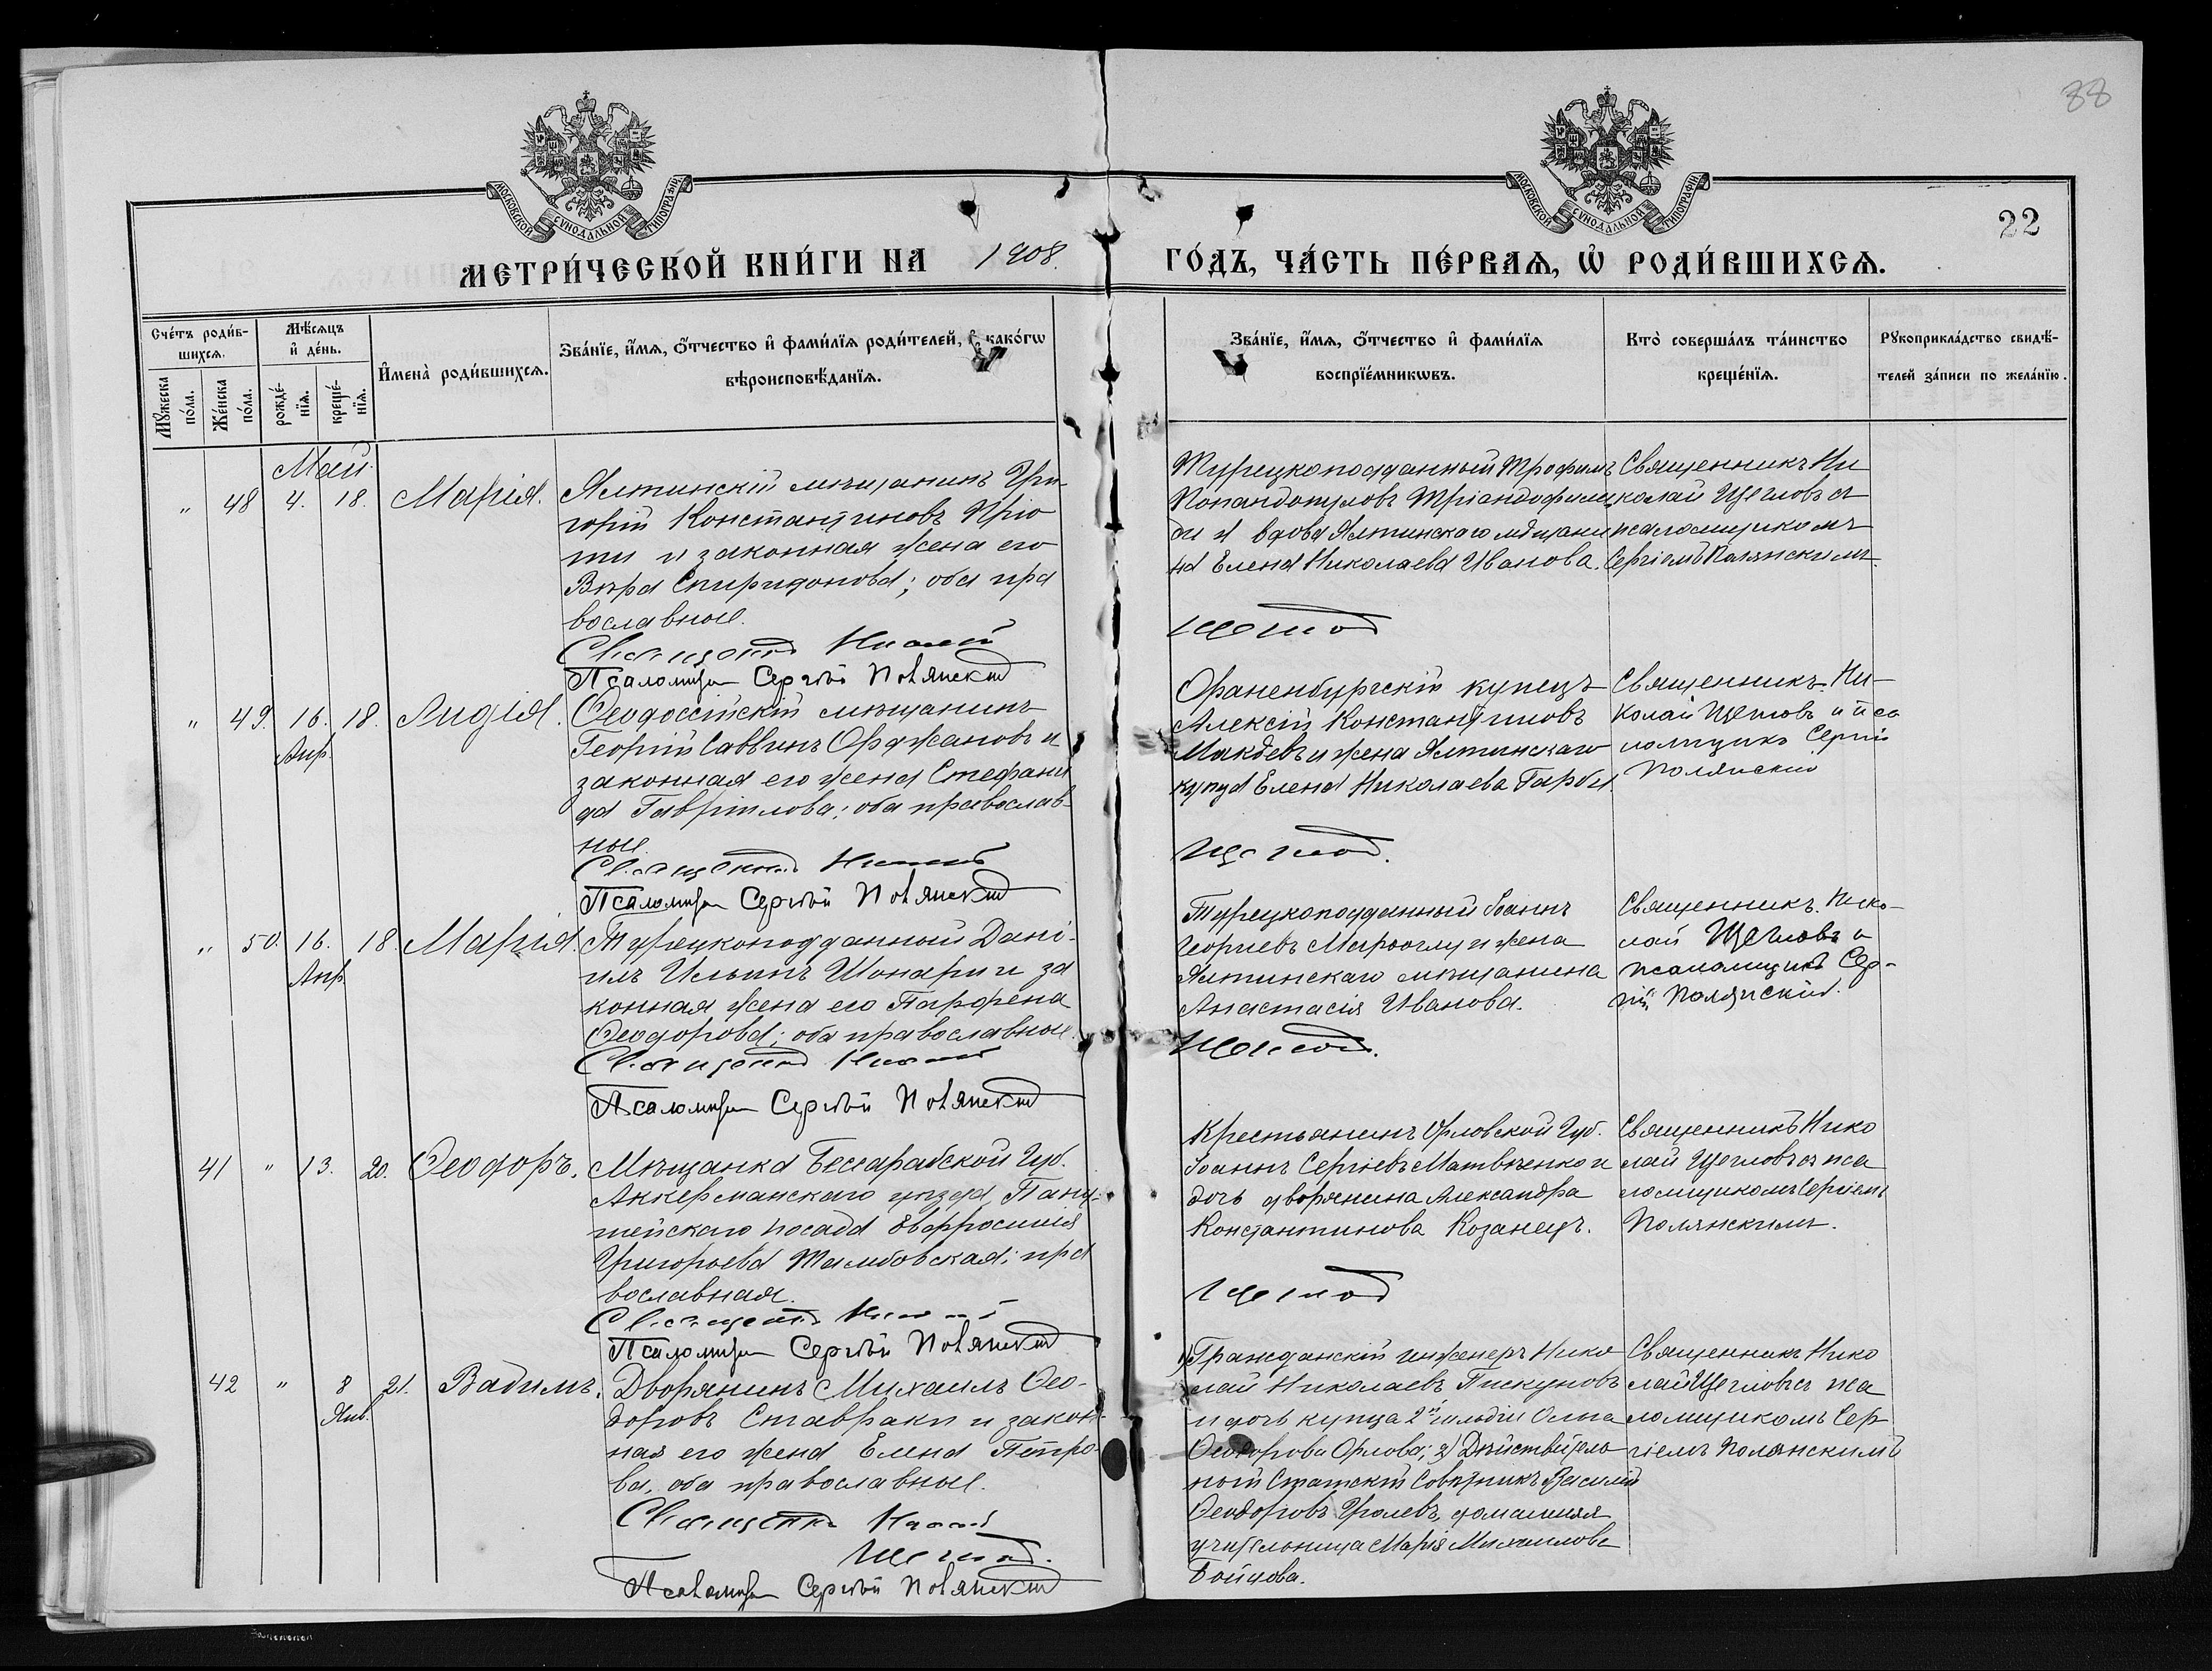 38
МОСКОВСКОЙ СѴНОДАЛЬНОЙ ТИПОГРАФІИ
МОСКОВСКОЙ СѴНОДАЛЬНОЙ ТИПОГРАФІИ
22
МЕТРИ́ЧЕСКОЙ КНИ́ГИ НА 1908. ГО́ДЪ, ЧА́СТЬ ПЕ́РВАѦ, Ѡ҆ РОДИ́ВШИХСѦ.
Сче́тъ роди́в-
шихсѧ.
Мꙋ́жеска
по́ла.
Же́нска
по́ла.
Мѣ́сѧцъ
и҆ де́нь.
рожде́-
нїѧ.
креще́-
нїѧ.
И҆мена̀ роди́вшихсѧ.
Зва́нїе, и҆́мѧ, ѻ҆́тчество и҆ фами́лїѧ роди́телей, и҆ како́гѡ
вѣроисповѣ́данїѧ.
Зва́нїе, и҆́мѧ, ѻ҆́тчество и҆ фами́лїѧ
воспрїе́мникѡвъ.
Кто̀ соверша́лъ та́инство
креще́нїѧ.
Рꙋкоприкла́дство свидѣ́-
телей за́писи по жела́нїю.
Май.
" 48 4. 18. Марія.
Ялтинскій мѣщанинъ Гри-
горій Константиновъ Кріо
ти и законная жена его
Вѣра Спиридонова; оба пра
вославные.
Священникъ Николай
Псаломщ Сергѣй Полянскій
Турецкоподданный Трофимъ
Попандопуловъ Тріандофили
ди и вдова Ялтинскаго мѣщани
на Елена Николаева Иванова.
Щегловъ
Священникъ Ни
колай Щегловъ съ
псаломщикомъ
Сергіемъ Полянскимъ.
" 49. 16. 18. Лидія.
Апр.
Ѳеодосійскій мѣщанинъ
Георгій Саввинъ Орджановъ и
законная его жена Стефани
да Гавріилова; оба православ-
ные.
Священникъ Николай
Псаломщ Сергѣй Полянскій
Ораненбургскій купецъ
Алексій Константиновъ
Макѣевъ и жена Ялтинскаго
купца Елена Николаева Гарби
Щегловъ.
Священникъ Ни-
колай Щегловъ и пса
ломщикъ Сергій
Полянскій
" 50. 16. 18. Марія.
Апр.
Турецкоподданный Дані-
илъ Ильинъ Шонари и за
конная жена его Парфена
Ѳеодорова; оба православные.
Священникъ Николай
Псаломщ Сергѣй Полянскій
Турецкоподданный Іоаннъ
Георгіевъ Мароглу и жена
Ялтинскаго мѣщанина
Анастасія Иванова.
Щегловъ.
Священникъ Нико-
лай Щегловъ и
псаломщикъ Сер-
гій Полянскій.
41 " 13. 20. Ѳеодоръ.
Мѣщанка Бессарабской Губ.
Аккерманскаго уѣзда, Папу-
шейскаго посада Евфросинія
Григорьева Тамбовская; пра
вославная.
Священникъ Николай
Псаломщ Сергѣй Полянскій
Крестьянинъ Орловской Губ.
Іоаннъ Сергіевъ Матвѣенко и
дочь дворянина Александра
Константинова Козанецъ.
Щегловъ
Священникъ Нико
лай Щегловъ съ пса
ломщикомъ Сергіемъ
Полянскимъ.
42 " 8 21. Вадимъ.
Янв.
Дворянинъ Михаилъ Ѳео-
доровъ Ставраки и закон-
ная его жена Елена Петро-
ва, оба православные.
Священникъ Николай
Щегловъ.
Псаломщ Сергѣй Полянскій
1) Гражданскій инженеръ Нико
лай Николаевъ Пискуновъ
и дочь купца 2й гильдіи Ольга
Ѳеодорова Орлова; 2) Дѣйствитель
ный Статскій Совѣтникъ Василій
Ѳеодоровъ домашняя
учительница Марія Михаилова
Бойцова.
Священникъ Нико
лай Щегловъ съ пса
ломщикомъ Сер
гіемъ Полянскимъ